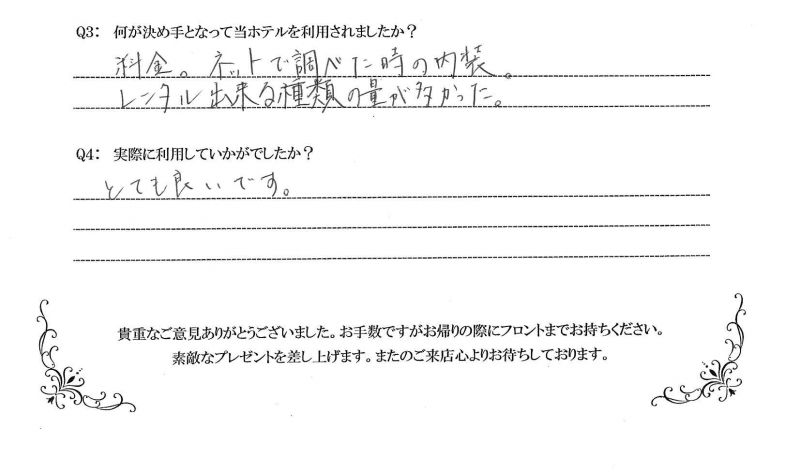 Q3: 何が決め手となって当ホテルを利用されましたか?
料金。ネットで調べた時の内装。
レンタル出来る種類の量が多かった。
Q4: 実際に利用していかがでしたか?
とても良いです。
貴重なご意見ありがとうございました。お手数ですがお帰りの際にフロントまでお持ちください。
素敵なプレゼントを差し上げます。またのご来店心よりお待ちしております。